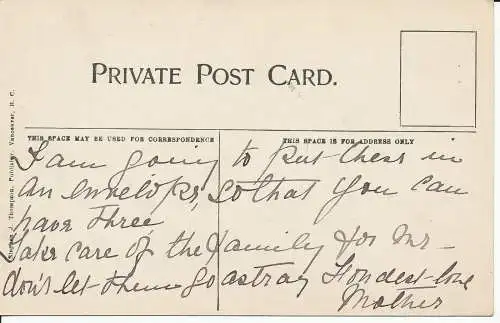 PRIVATE POST CARD.
THIS SPACE MAY BE USED FOR CORRESPONDENCE
THIS SPACE IS FOR ADDRESS ONLY
J. Thompson, Publisher, Vancouver, B. C.
I am going to put these in
an envelope, so that you can
have three
Take care of the family for me -
don't let them go astray Fondest love
Mother